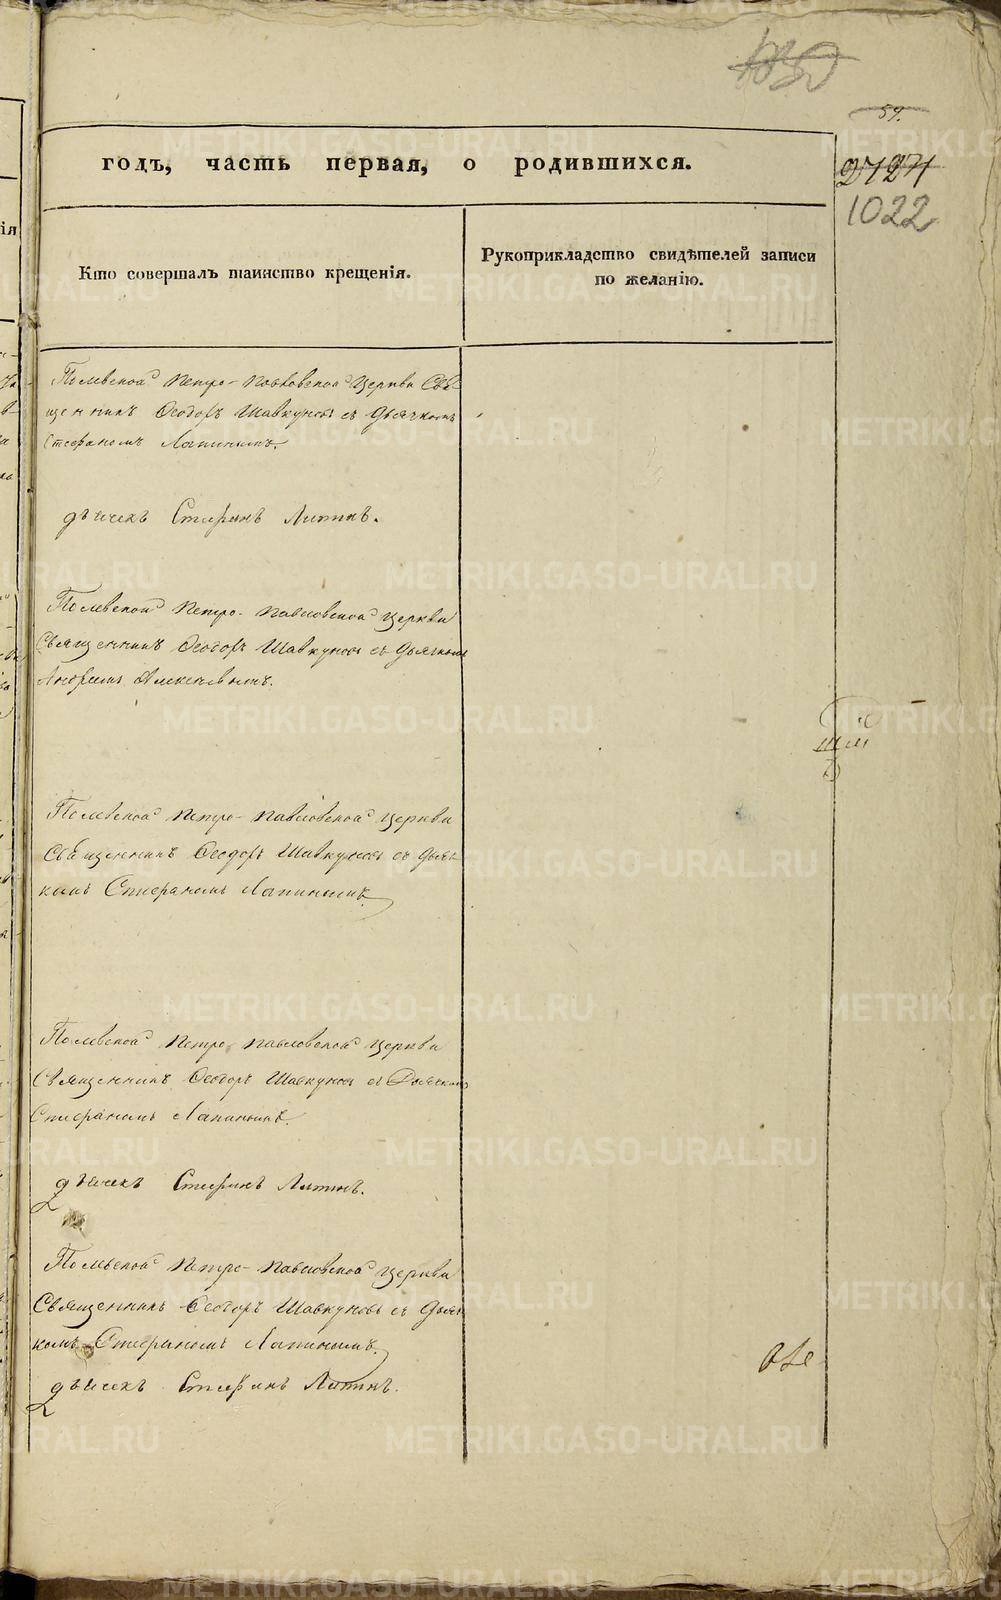 59.
2124
1022
годъ, часть первая, о родившихся.
Кто совершалъ таинство крещенія.
Рукоприкладство свидѣтелей записи
по желанію.
Полевской Петро-Павловской Церкви Свя-
щенникъ Феодоръ Шавкуновъ съ Дьячкомъ
Стефаномъ Лапинымъ.
дьячекъ Стефанъ
Полевской Петро-Павловской Церкви
Священникъ Феодоръ Шавкуновъ съ Дьячкомъ
Андреемъ Алексеевымъ.
Полевской Петро-Павловской Церкви
Священникъ Феодоръ Шавкуновъ съ Дьяч-
комъ Стефаномъ Лапинымъ.
Полевской Петро-Павловской Церкви
Священникъ Феодоръ Шавкуновъ съ Дьячкомъ
Стефаномъ Лапинымъ.
дьячекъ Стефанъ
Полевской Петро-Павловской Церкви
Священникъ Феодоръ Шавкуновъ съ Дьяч-
комъ Стефаномъ Лапинымъ.
дьячекъ Стефанъ
METRIKI.GASO-URAL.RU